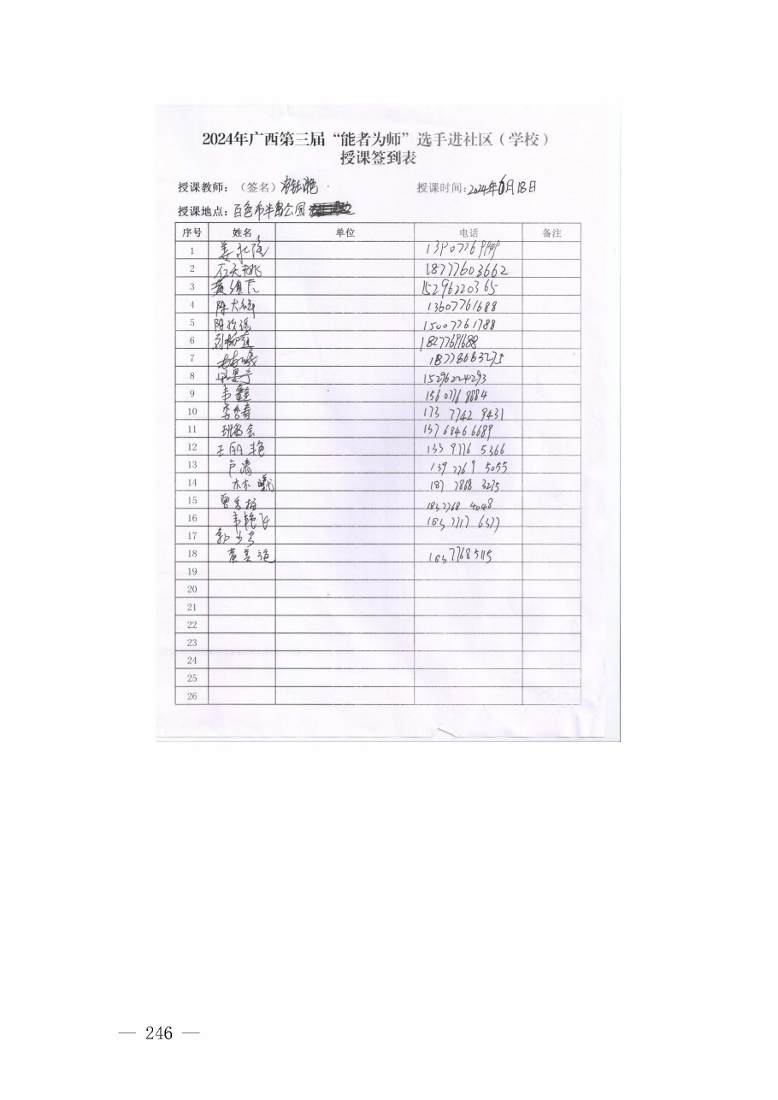 2024年广西第三届“能者为师”选手进社区（学校）
授课签到表
授课教师：（签名） 授课时间：2024年6月18日
授课地点：百色市半岛公园
序号 姓名 单位 电话 备注
1
2 18777603662
3 15296220365
4 13607761688
5 15007761788
6 18277691688
7 18778663275
8 15296224293
9
10 李春青 173 7742 9431
11 13768466689
12 王丽艳 133 9776 5366
13 卢清 139 7769 5055
14 林曦 187 7866 3275
15 1837768 4048
16 韦艳飞 183 7717 6377
17
18 黄美艳 18377685115
19
20
21
22
23
24
25
26
— 246 —